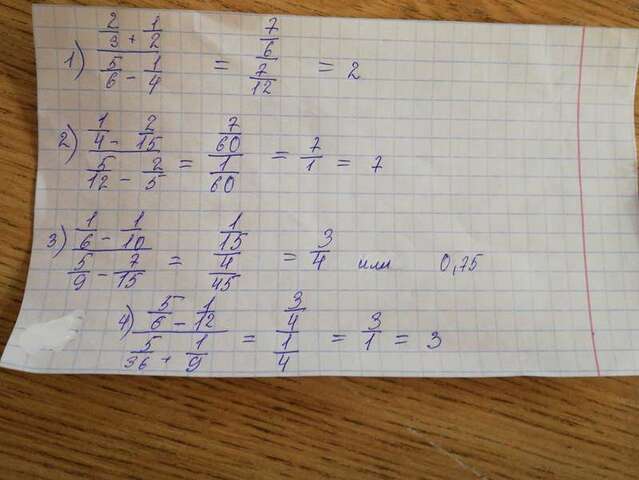 1) (2/3 + 1/2)/(5/6 - 1/4) = (7/6)/(7/12) = 2
2) (1/4 - 2/15)/(5/12 - 2/5) = (7/60)/(1/60) = 7/1 = 7
3) (1/6 - 1/10)/(5/9 - 7/15) = (1/15)/(4/45) = 3/4 или 0,75
4) (5/6 - 1/12)/(5/36 + 1/9) = (3/4)/(1/4) = 3/1 = 3